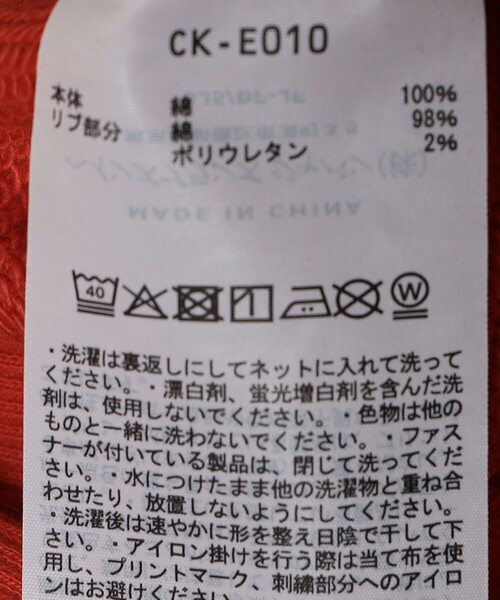 CK-E010
本体 綿 100%
リブ部分 綿 98%
ポリウレタン 2%
MADE IN CHINA
40
W
・洗濯は裏返しにしてネットに入れて洗って
ください。・漂白剤、蛍光増白剤を含んだ洗
剤は、使用しないでください。・色物は他の
ものと一緒に洗わないでください。・ファス
ナーが付いている製品は、閉じて洗ってくだ
さい。・水につけたまま他の洗濯物と重ね合
わせたり、放置しないようにしてください。
・洗濯後は速やかに形を整え日陰で干して下
さい。・アイロン掛けを行う際は当て布を使
用し、プリントマーク、刺繍部分へのアイロ
ンはお避けください。